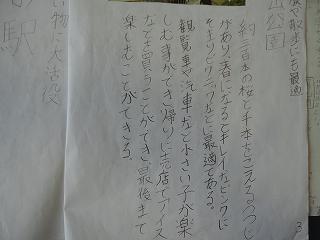 散歩にも最適
公園
約三百本の桜と千本をこえるつつじ
があり春になるとキレイなピンクに
そまりピクニックなどに最適である。
観覧車や汽車など小さい子が楽
しむ事ができ帰りに売店でアイス
などを買うことができ、最後まで
楽しむことができる。
3
い物に大活役
駅